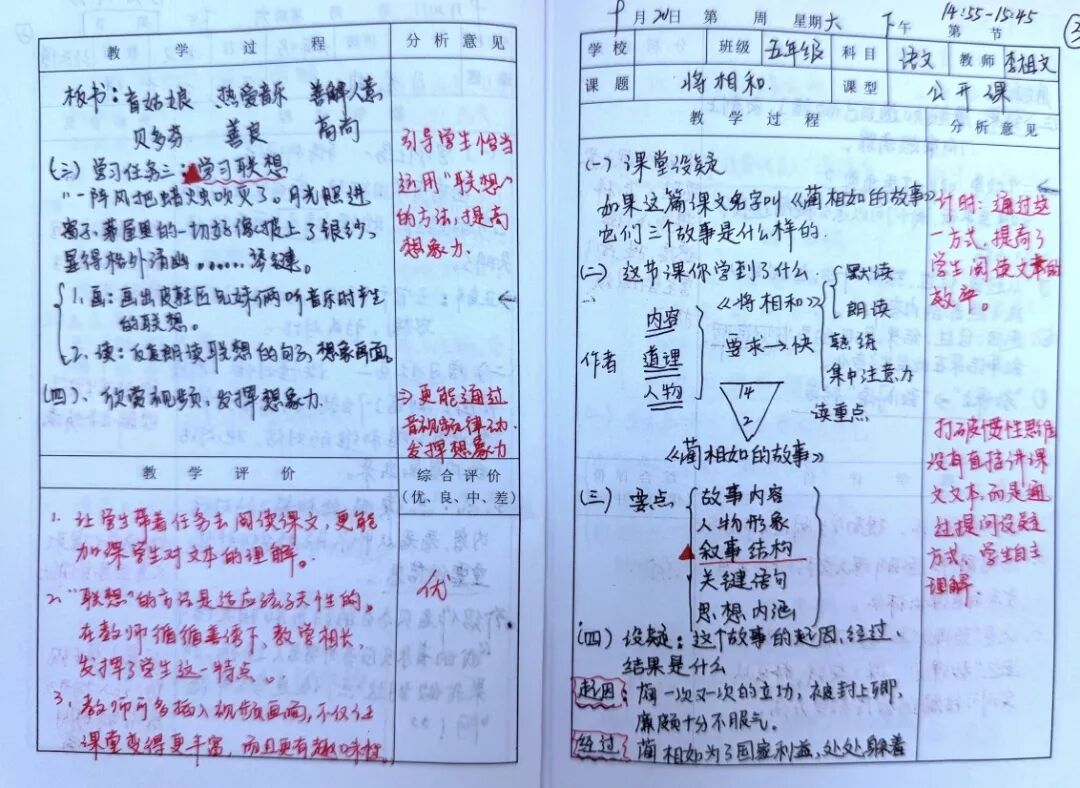 教学过程 分析意见
板书：盲姑娘 热爱音乐 善解人意
贝多芬 善良 高尚
(三) 学习任务三：学习联想
"一阵风把蜡烛吹灭了。月光照进
窗子，茅屋里的一切好像披上了银纱，
显得格外清幽。……琴键。
1. 画：画出皮鞋匠兄妹俩听音乐时产生
的联想。
2. 读：反复朗读联想的句子，想象画面。
(四)、欣赏视频，发挥想象力
引导学生恰当
运用"联想"
的方法，提高
想象力.
⇒更能通过
音视频的律动
发挥想象力
教学评价 综合评价
(优、良、中、差)
1. 让学生带着任务去阅读课文，更能
加深学生对文本的理解。
2."联想"的方法是适应孩子天性的。
在教师循循善诱下，教学相长，
发挥了学生这一特点。
3. 教师可多插入视频画面，不仅让
课堂变得更丰富，而且更有趣味性。
优
十月20日 第 周 星期六 下午 第 节
14:55-15:45
③
学校 班级 五年级 科目 语文 教师 李祖文
课题 将相和. 课型 公开课
教学过程 分析意见
(一) 课堂设疑
如果这篇课文名字叫《蔺相如的故事》
它们三个故事是什么样的.
(二) 这节课你学到了什么
《将相和》
作者 内容 道理 人物
要求→快
默读
朗读
熟练
集中注意力
14
2
读重点
《蔺相如的故事》
(三) 要点
故事内容
人物形象
叙事结构
关键语句
思想内涵
(四) 设疑：这个故事的起因、经过、
结果是什么
起因：蔺一次又一次的立功，被封上卿，
廉颇十分不服气。
经过：蔺相如为了国家利益，处处躲着
计时：通过这
一方式，提高了
学生阅读文章的
效率。
打破惯性思维
没有直接讲课
文文本，而是通
过提问设疑
方式，学生自主
理解.